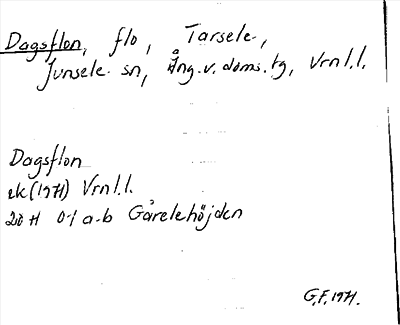 Dagsflon, flo, Tarsele,
Junsele sn, Ång. v. doms. tg, Vrnl.l.
Dagsflon
ek (1971) Vrnl.l.
20 H 0-1 a-b Gårelehöjden
G.F. 1971.